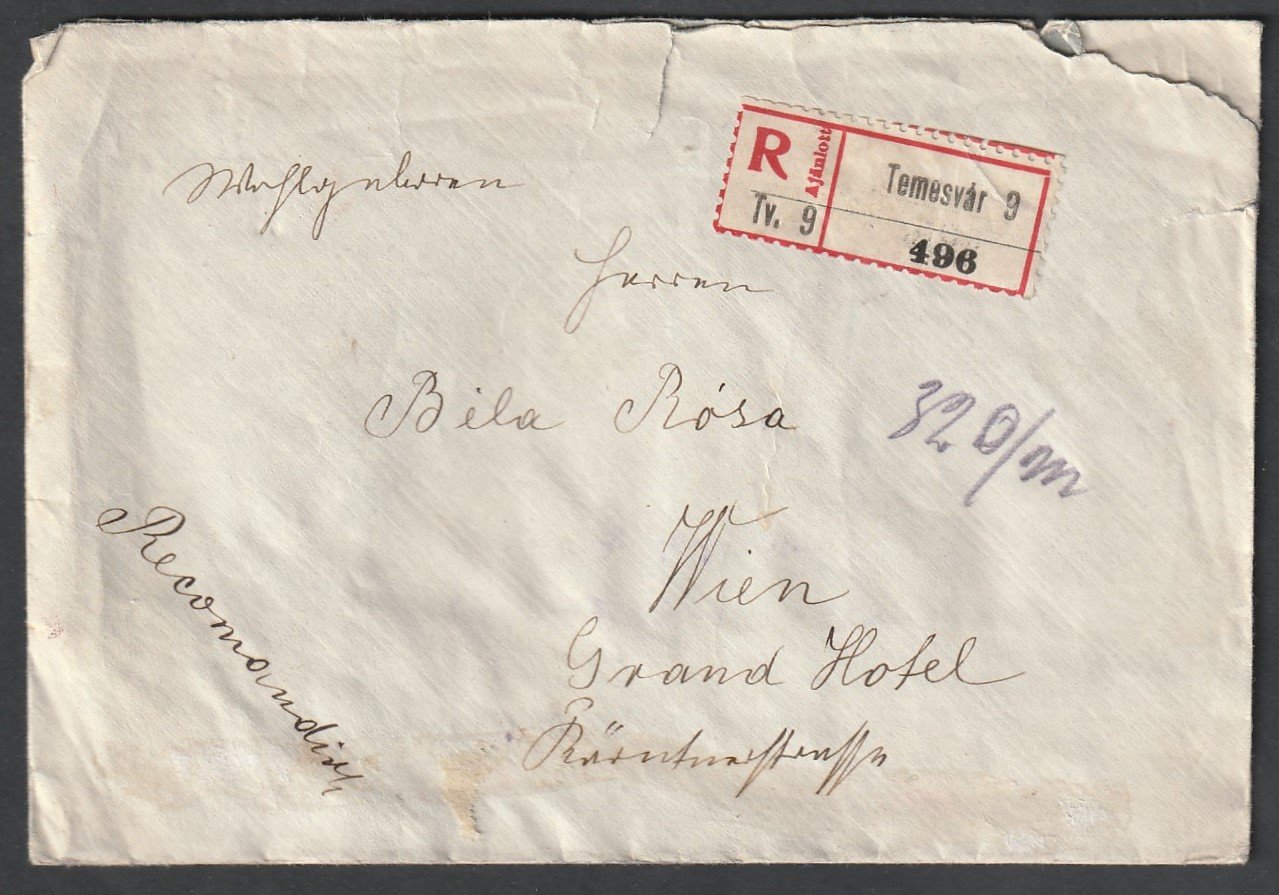 Wohlgeboren
R Ajánlott
Temesvár 9
Tv. 9
496
Herren
Béla Rósa
32
Wien
Recomandirt
Grand Hotel
Kärntnerstrasse